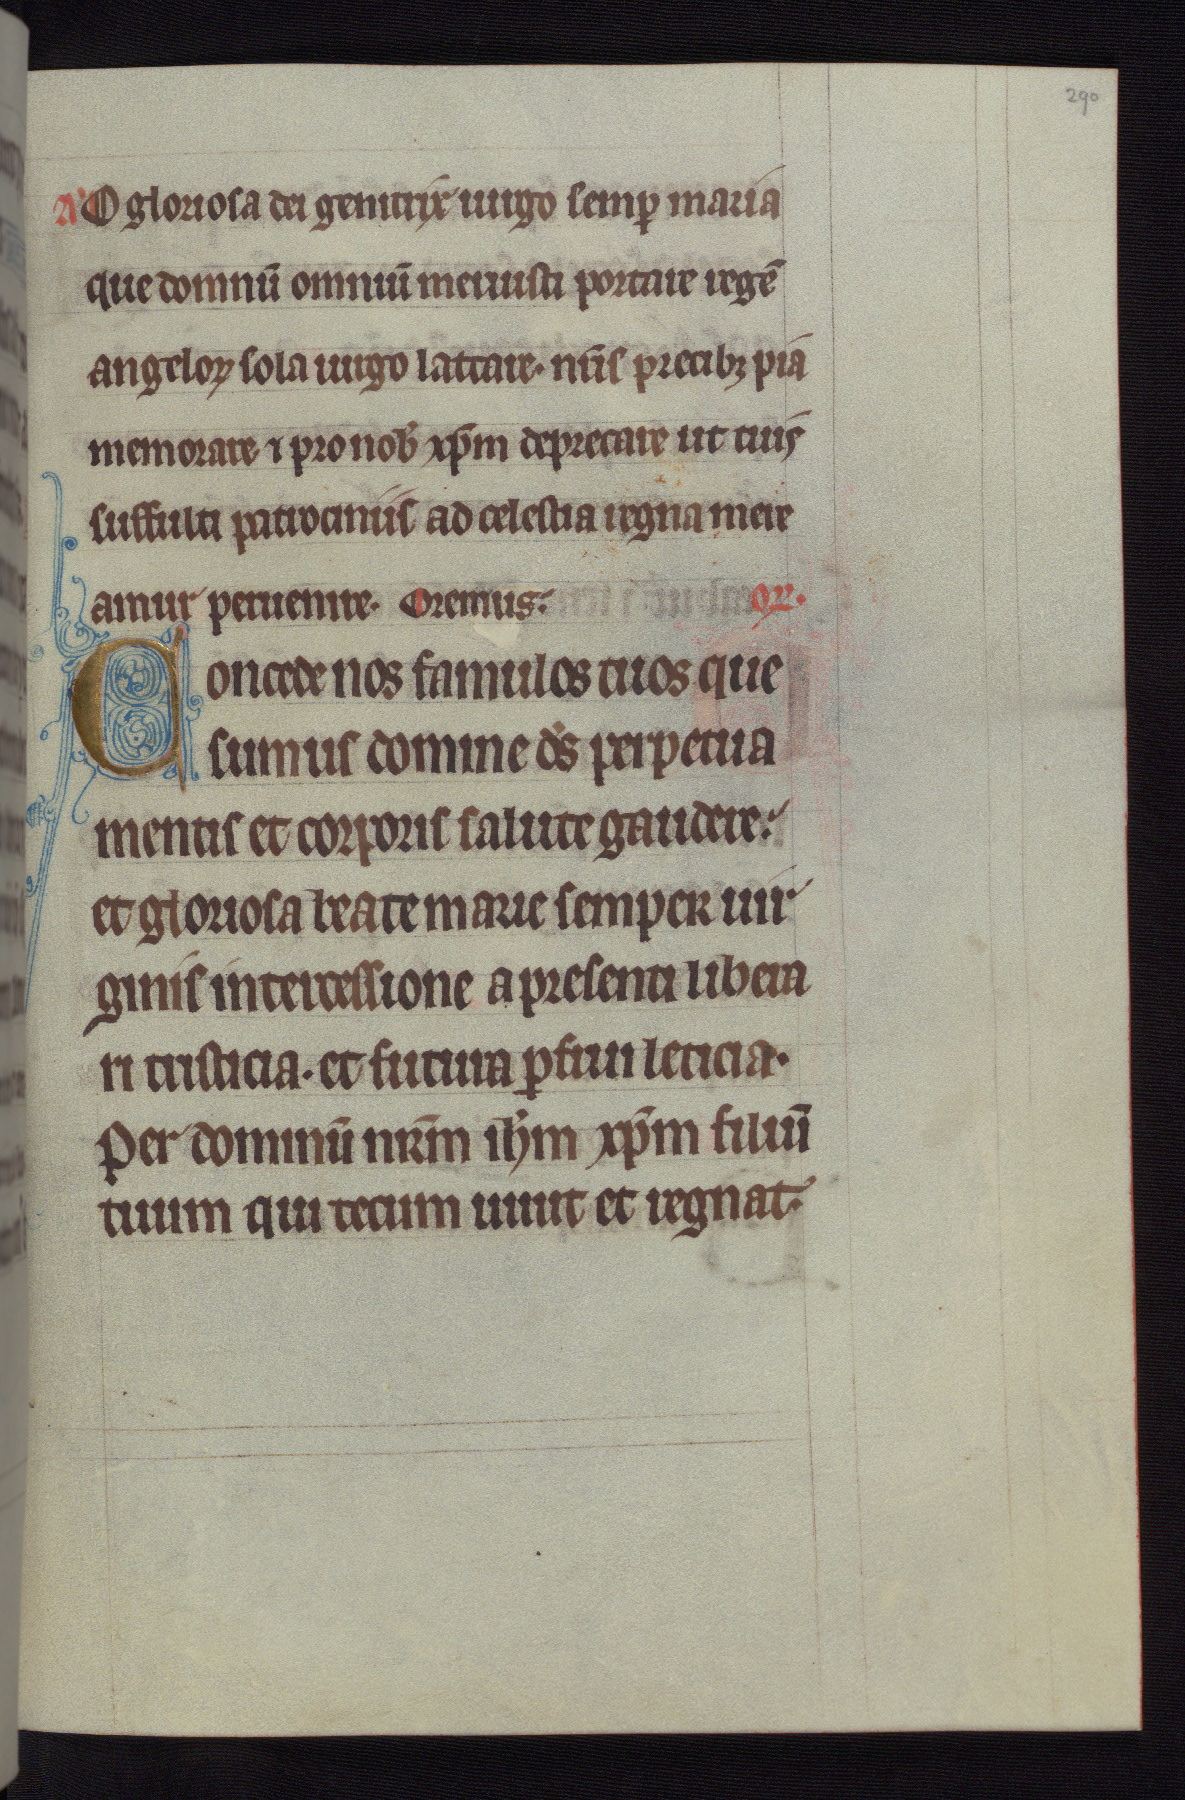 290
A' O gloriosa dei genitrix uirgo semꝑ maria
que domnū omniū meruisti portare regē
angeloꝝ sola uirgo lactare. nr̄is precibꝫ pia
memorare ⁊ pro nob̄ xp̄m deprecare ut tuis
suffulti patrociniis ad celestia regna mere
amur peruenire. Oremus. or̄.
Concede nos famulos tuos que
sumus domine ds̄ perpetua
mentis et corporis salute gaudere.
et gloriosa beate marie semper uir
ginis intercessione a presenti libera
ri tristicia. et futura ꝑfrui leticia.
Per dominū nr̄m ih̄m xp̄m filiū
tuum qui tecum uiuit et regnat.